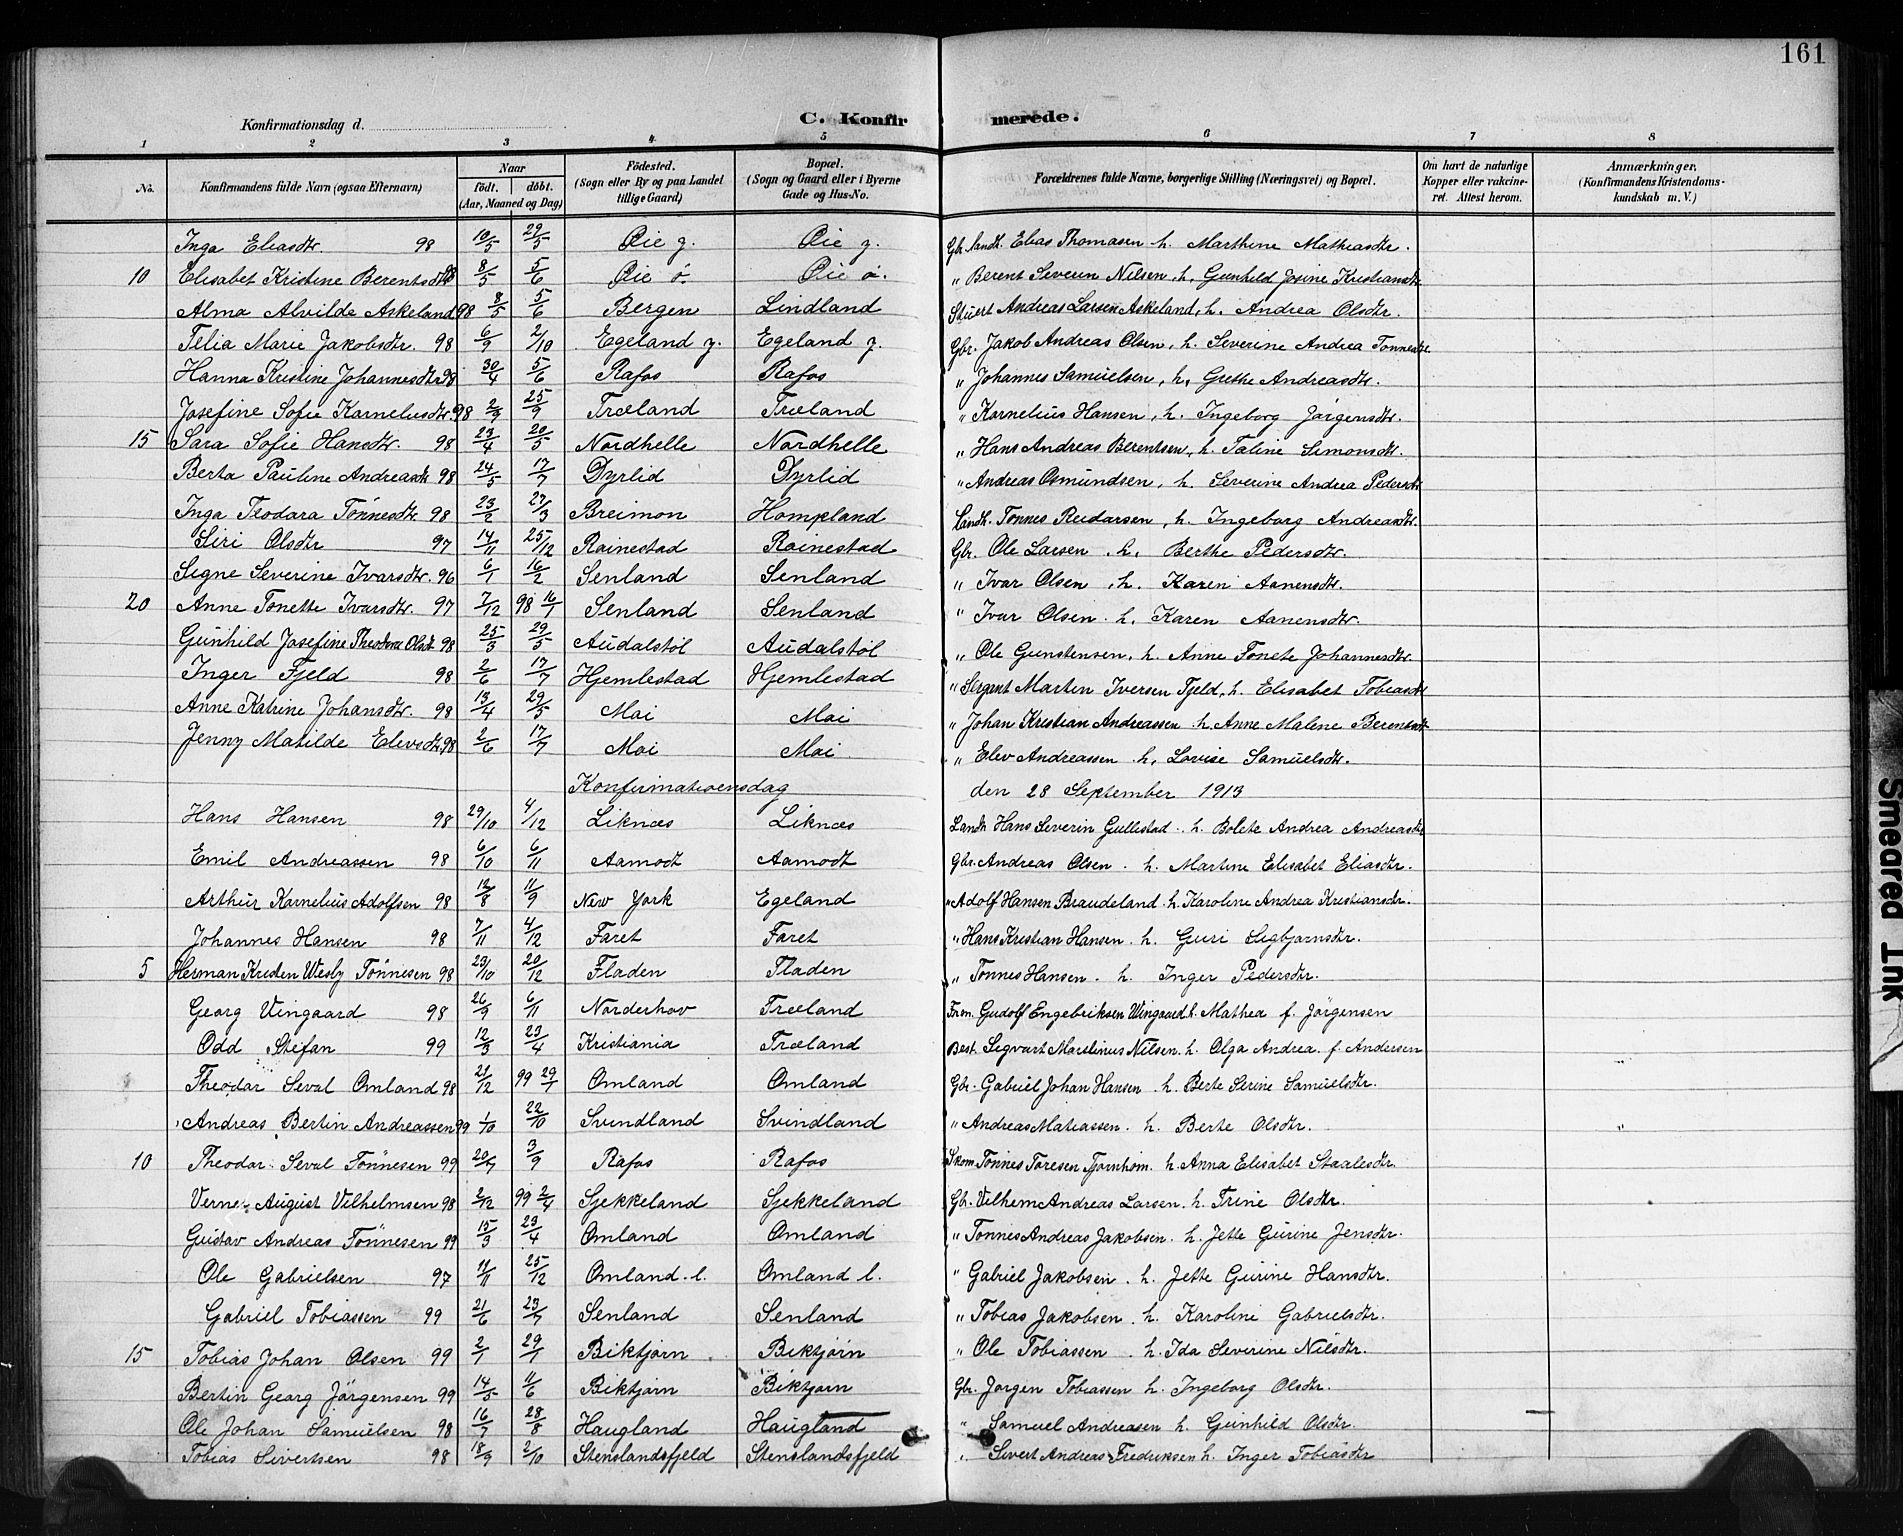 161
Konfirmationsdag d. C. Konfirmerede.
1 2 3 4 5 6 7 8
No. Konfirmandens fulde Navn (ogsaa Efternavn) Naar født. døbt. (Aar, Maaned og Dag) Fødested. (Sogn eller By og paa Landet tillige Gaard) Bopæl. (Sogn og Gaard eller i Byerne Gade og Hus-No. Forældrenes fulde Navne, borgerlige Stilling (Næringsvei) og Bopæl. Om havt de naturlige Kopper eller vakcineret. Attest herom. Anmærkninger. (Konfirmandens Kristendomskundskab m. V.)
Inga Eliasdtr. 98 10/5 29/5 Øie y. Øie y. Gbr. landh. Elias Thomasen h. Marthine Mathiasdtr.
10 Elisabet Kristine Berentsdtr 98 8/5 5/6 Øie ø. Øie ø. " Berent Severin Nilsen, h. Gunhild Josine Kristiansdtr
Alma Alvilde Askeland 98 8/5 5/6 Bergen Lindland Stuert Andreas Larsen Askeland, h. Andrea Olsdtr.
Telia Marie Jakobsdtr. 98 6/9 2/10 Egeland y. Egeland y. Gbr. Jakob Andreas Olsen, h. Severine Andrea Tønnesdtr.
Hanna Kristine Johannesdtr 98 30/4 5/6 Rafos Rafos " Johannes Samuelsen, h. Grethe Andreasdtr.
Josefine Sofie Karneliusdtr. 98 2/9 25/9 Træland Træland " Karnelius Hansen, h. Ingeborg Jørgensdtr.
15 Sara Sofie Hansdtr. 98 23/4 20/5 Nordhelle Nordhelle " Hans Andreas Berentsen, h. Taline Simonsdtr.
Berta Pauline Andreasdtr 98 24/5 17/7 Dyrlid Dyrlid " Andreas Osmundsen, h. Severine Andrea Pedersdtr
Inga Teodora Tønnesdtr. 98 23/2 27/3 Breimon Hompland Landh. Tønnes Reidarsen, h. Ingeborg Andreasdtr.
Siri Olsdtr 97 14/11 25/12 Rainestad Rainestad Gbr. Ole Larsen, h. Berthe Pedersdtr.
Signe Severine Ivarsdtr. 96 6/1 16/2 Senland Senland " Ivar Olsen, h. Karen Aanensdtr.
20 Anne Tonette Ivarsdtr. 97 7/12 98 16/1 Senland Senland " Ivar Olsen. h. Karen Aanensdtr.
Gunhild Josefine Theodora Olsdt 98 25/3 29/5 Audalstøl Audalstøl " Ole Gunstensen, h. Anne Tonete Johannesdtr.
Inger Fjeld 98 2/6 17/7 Hjemlestad Hjemlestad " Sirgent Martin Iversen Fjeld, h. Elisabet Tobiasdtr
Anne Katrine Johansdtr. 98 13/4 29/5 Moi Moi " Johan Kristian Andreassen h. Anne Malene Berentsdtr
Jenny Matilde Elevsdtr 98 2/6 17/7 Moi Moi. " Elev Andreassen h. Lovise Samuelsdtr.
Konfirmationsdag den 28 September 1913
Hans Hansen 98 29/10 4/12 Liknæs Liknæs Landh Hans Severin Gullestad. h. Bolete Andrea Andreasdtr
Emil Andreassen 98 6/10 6/11 Aamodt Aamodt Gbr. Andreas Olsen. h. Martine Elisabet Eliasdtr.
Arthur Karnelius Adolfsen 98 12/8 11/9 New York Egeland " Adolf Hansen Braudeland. h. Karoline Andrea Kristiansdtr.
Johannes Hansen 98 7/11 4/12 Faret Faret " Hans Kristian Hansen. h. Guri Sigbjørnsdtr.
5 Herman Kristen Wesby Tønnesen 98 23/10 20/12 Fladen Fladen " Tønnes Hansen. h. Inger Pedersdtr.
Georg Vingaard 98 26/9 6/11 Norderhov Træland Frem. Gudolf Engebriksen Wingaard h. Mathea f. Jörgensen
Odd Stefan 99 12/3 23/4 Kristiania Træland Best. Sigvart Marelinus Nilsen. h. Olga Andrea f. Andersen
Theodor Seval Omland 98 21/12 99 29/1 Omland Omland Gbr. Gabriel Johan Hansen. h. Berte Serine Samuelsdtr.
Andreas Bertin Andreassen 99 1/10 22/10 Svindland Svindland " Andreas Matiassen. h. Berte Olsdtr.
10 Theodor Seval Tønnesen 99 20/7 3/9 Rafos Rafos Skom. Tønnes Toresen Tjornhom. h. Anna Elisabet Staalesdtr.
Verner August Vilhelmsen 98 2/12 99 2/4 Sjekkeland Sjekkeland Gbr. Vilhem Andreas Larsen. h. Trine Olsdtr.
Gustav Andreas Tønnesen 99 15/3 23/4 Omland Omland " Tønnes Andreas Jakobsen. h. Jette Gurine Jensdtr.
Ole Gabrielsen 97 11/11 25/12 Omland. l. Omland l. " Gabriel Jakobsen. h. Jette Gurine Hansdtr.
Gabriel Tobiassen 99 21/6 23/7 Senland Senland " Tobias Jakobsen. h. Karoline Gabrielsdtr.
15 Tobias Johan Olsen 99 2/1 29/1 Biktjørn Biktjørn " Ole Tobiassen h. Ida Severine Nilsdtr.
Bertin Georg Jörgensen 99 14/5 11/6 Biktjørn Biktjørn Gbr. Jorgen Tobiassen h. Ingeborg Olsdtr.
Ole Johan Samuelsen 98 16/7 28/8 Haugland Haugland " Samuel Andreasen h. Gunhild Olsdtr.
Tobias Sivertsen 98 18/9 2/10 Stenslandsfjeld Stenslandsfjeld " Sivert Andreas Fredriksen h. Inger Tobiasdtr
Smeared Ink